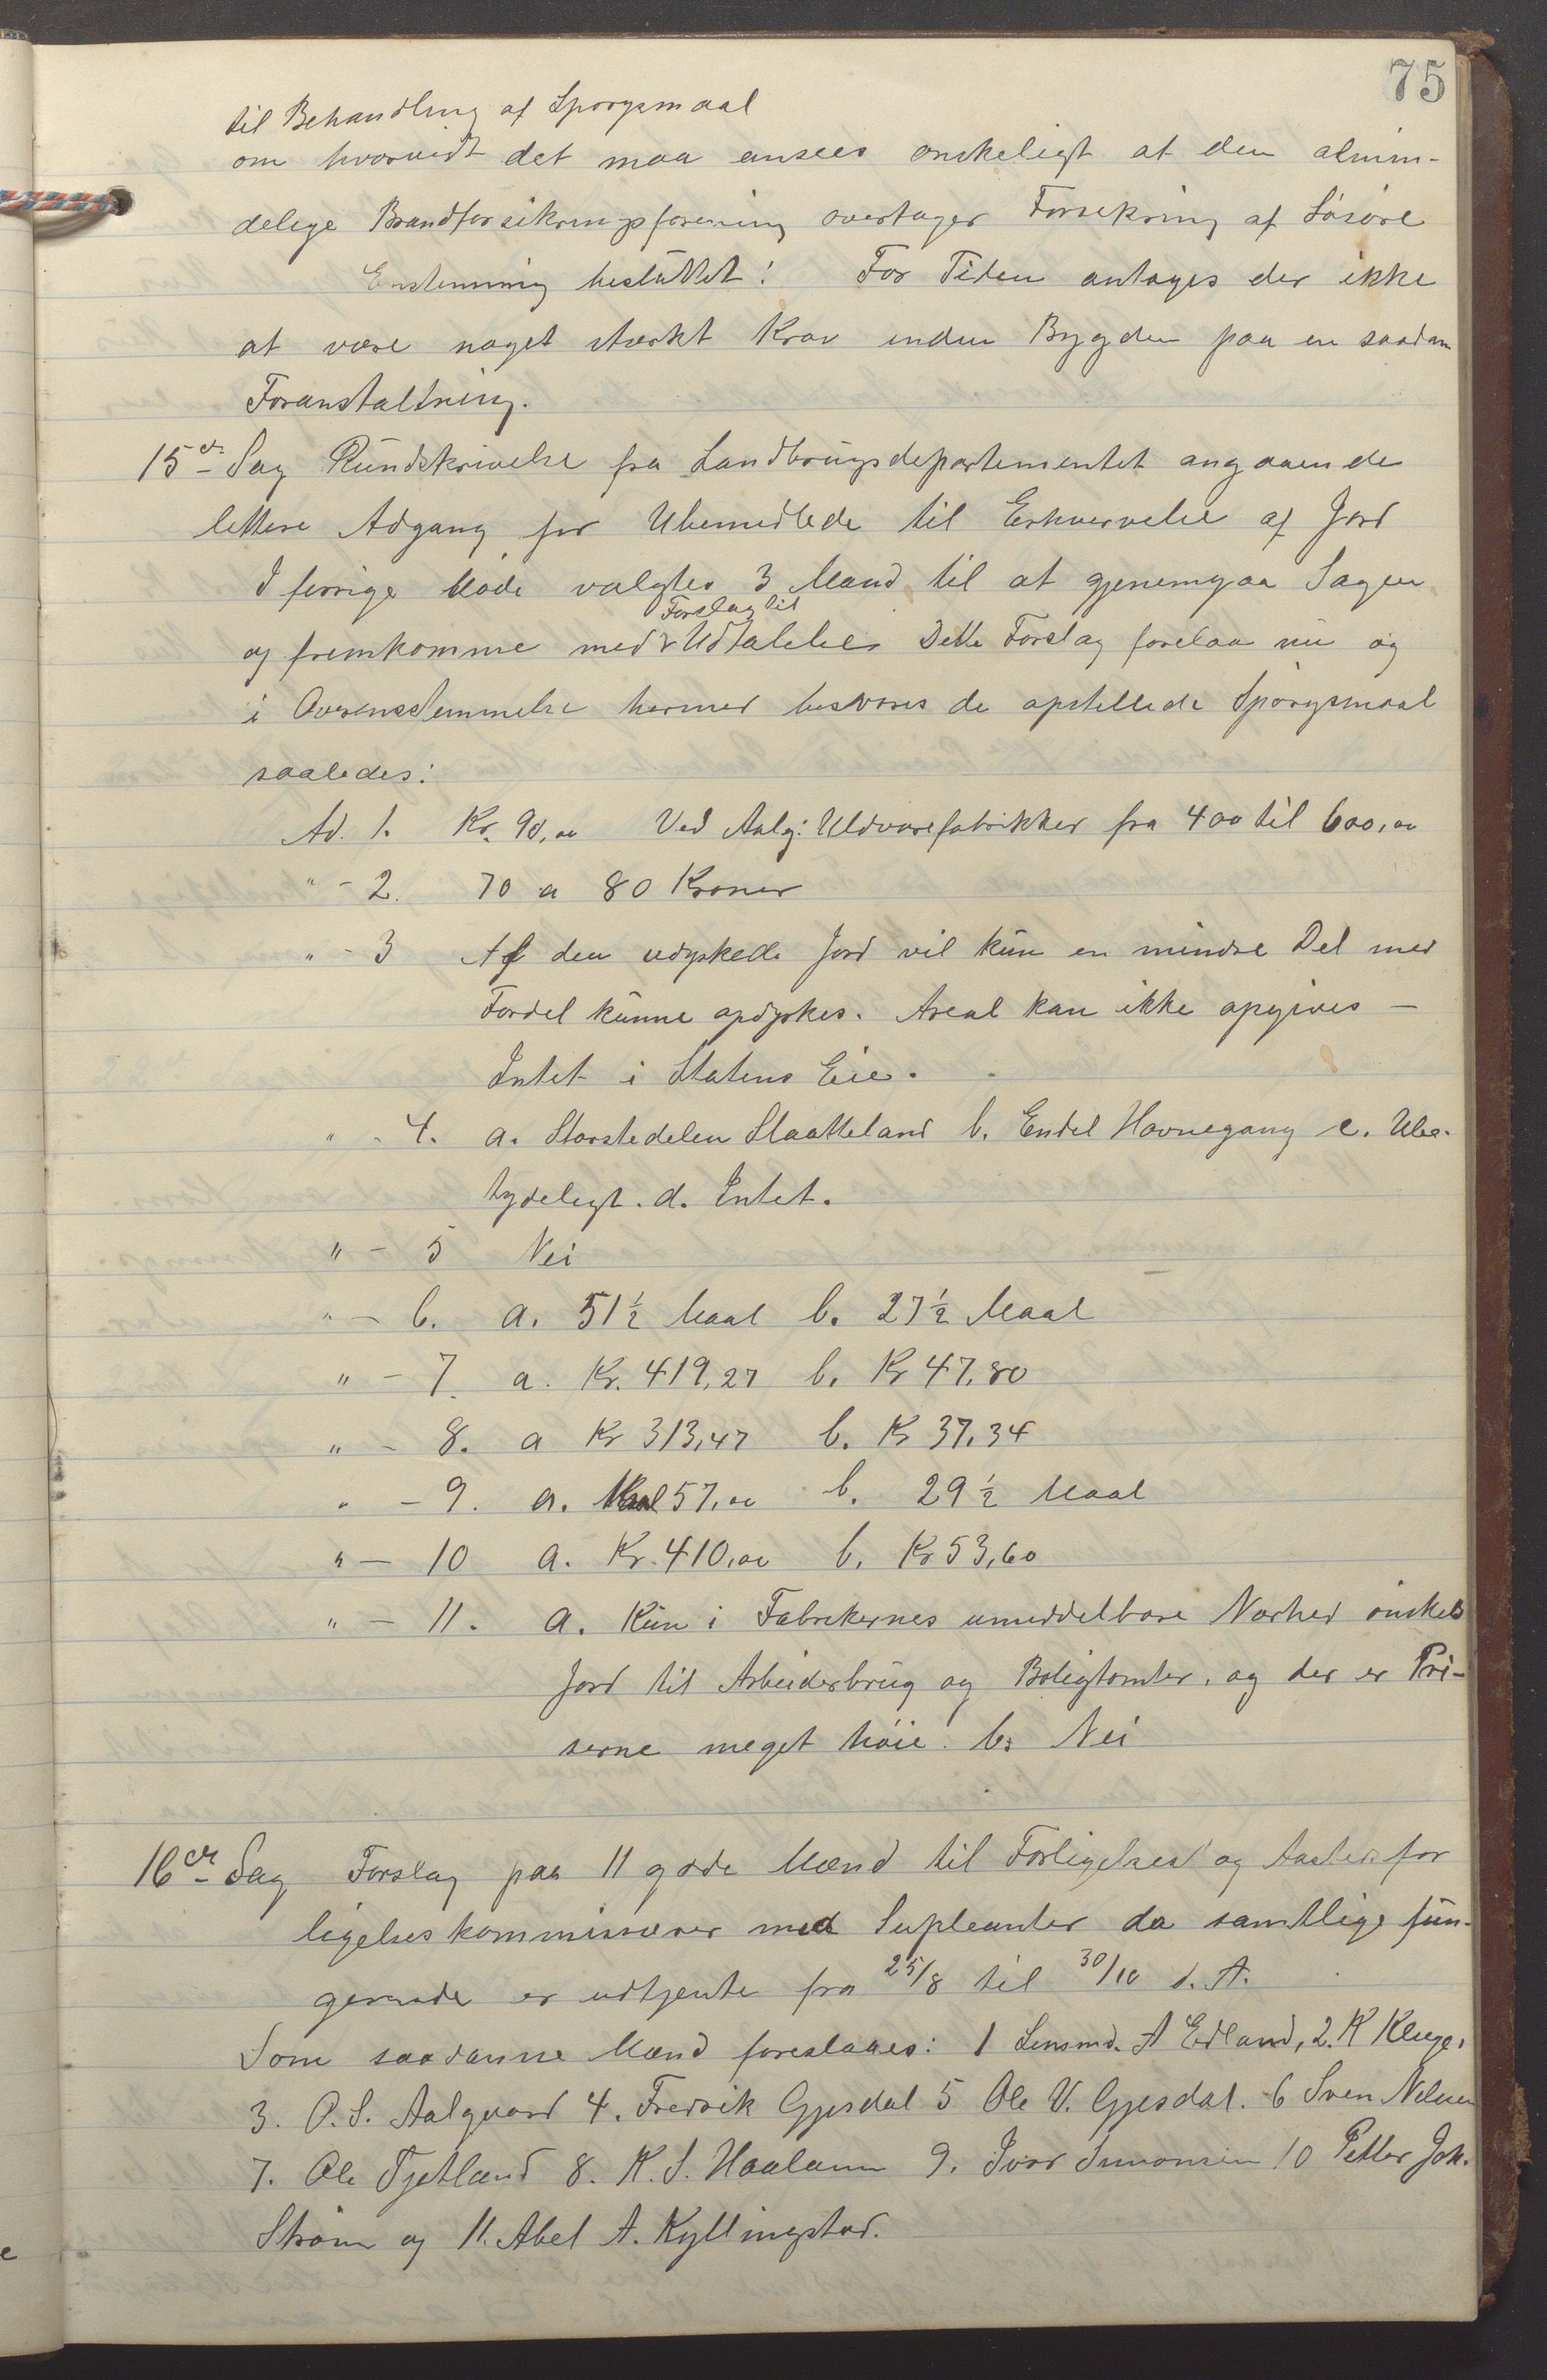 75
til Behandling af Spørgsmaal
om hvorvidt det maa ansees ønskeligt at den almin-
delige Brandforsikringsforening overtager Forsikring af Løsøre
Enstemmig besluttet: For Tiden antages der ikke
at være noget stærkt Krav inden Bygden paa en saadan
Foranstaltning.
15de Sag Rundskrivelse fra Landbrugsdepartementet angaaende
lettere Adgang for Ubemidlede til Erhvervelse af Jord
I forrige Møde valgtes 3 Mand til at gjenemgaa Sagen
Forslag til
og fremkomme med Udtalelse. Dette Forslag forelaa nu og
i Overensstemmelse hermed besvares de opstillede Spørgsmaal
saaledes:
Ad. 1. Kr. 90,00 Ved Aalg: Uldvarefabrikker fra 400 til 600,00
" - 2. 70 a 80 Kroner
" - 3 Af den udyrkede Jord vil kun en mindre Del med
Fordel kunne opdyrkes. Areal kan ikke opgives -
Intet i Statens Eie.
" - 4. a. Størstedelen Slaatteland b. Endel Havnegang c. Ube-
tydeligt. d. Intet.
" - 5 Nei
" - 6. a. 51 1/2 Maal b. 27 1/2 Maal
" - 7. a. Kr. 419,27 b. Kr 47,80
" - 8. a Kr 313,47 b. Kr 37,34
" - 9. a. Maal 57,00 b. 29 1/2 Maal
" - 10 a. Kr. 410,00 b. Kr 53,60
" - 11. a. Kun i Fabrikernes umiddelbare Nærhed ønskes
Jord til Arbeiderbrug og Boligtomter, og der er Pri-
serne meget høie. b. Nei
16de Sag Forslag paa 11 gode Mænd til Forligelses og Aasteds for
ligelseskommissærer med Supleanter da samtlige fun-
gerende er udtjente fra 25/8 til 30/10 d. A.
Som saadanne Mænd foreslaaes: 1 Lensmd. A Edland, 2. K Kluge,
3. O. S. Aalgaard 4. Fredrik Gjesdal 5 Ole V. Gjesdal. 6 Sven Nilsen
7. Ole Tjetland 8. K. S. Haaland 9. Ivar Simonsen 10 Petter Joh.
Strøm og 11. Abel A. Kyllingstad.